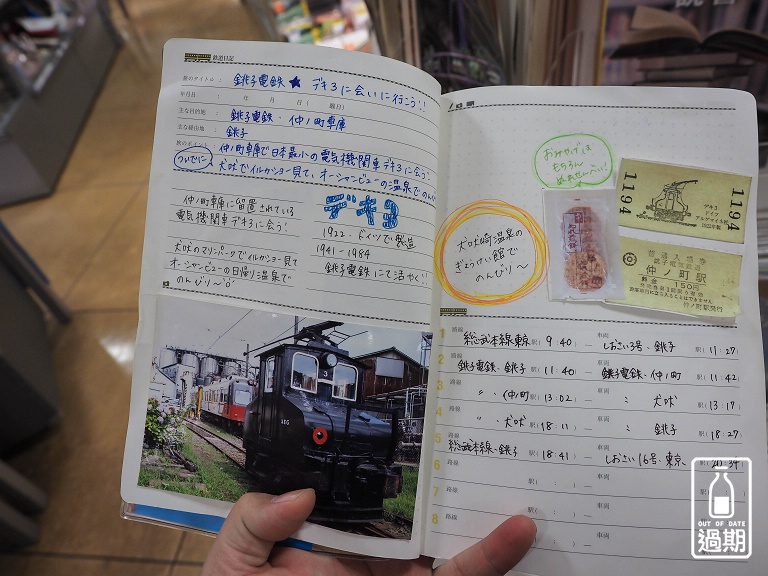 鉄道日記
旅のタイトル： 銚子電鉄 ★ デキ3に会いに行こう!!
年月日： 年 月 日（ 曜日）
主な目的地： 銚子電鉄・仲ノ町車庫
主な経由地： 銚子
旅のポイント： 仲ノ町車庫で日本最小の電気機関車デキ3に会う!
ついでに 犬吠でイルカショー見て、オーシャンビューの温泉でのんびり
仲ノ町車庫に留置されている
電気機関車デキ3に会う!
犬吠のマリンパークでイルカショー見て
オーシャンビューの日帰り温泉で
のんびり〜
デキ3
1922・ドイツで製造
1941-1984
銚子電鉄にて活や〈!!
3
おみやげは
もちろん
ぬれせんべい!
犬吠崎温泉の
ぎょうけい館で
のんびり〜
1194
デキ3
ドイツ
アルゲマイネ社
1922年製
1194
普通入場券
銚子電気鉄道
仲ノ町駅
料金 150円
仲ノ町駅発行
1 路線 総武本線・東京 駅（9：40）— 車両 しおさい3号・銚子 駅（11：27）
2 路線 銚子電鉄・銚子 駅（11：40）— 車両 銚子電鉄・仲ノ町 駅（11：42）
3 路線 〃 ・仲ノ町 駅（13：02）— 車両 〃 犬吠 駅（13：17）
4 路線 〃 ・犬吠 駅（18：11）— 車両 〃 銚子 駅（18：27）
5 路線 総武本線・銚子 駅（18：41）— 車両 しおさい16号・東京 駅（20：39）
6 路線 駅（ ： ）— 車両
7 路線 駅（ ： ）— 車両
8 路線
OUT OF DATE
過期